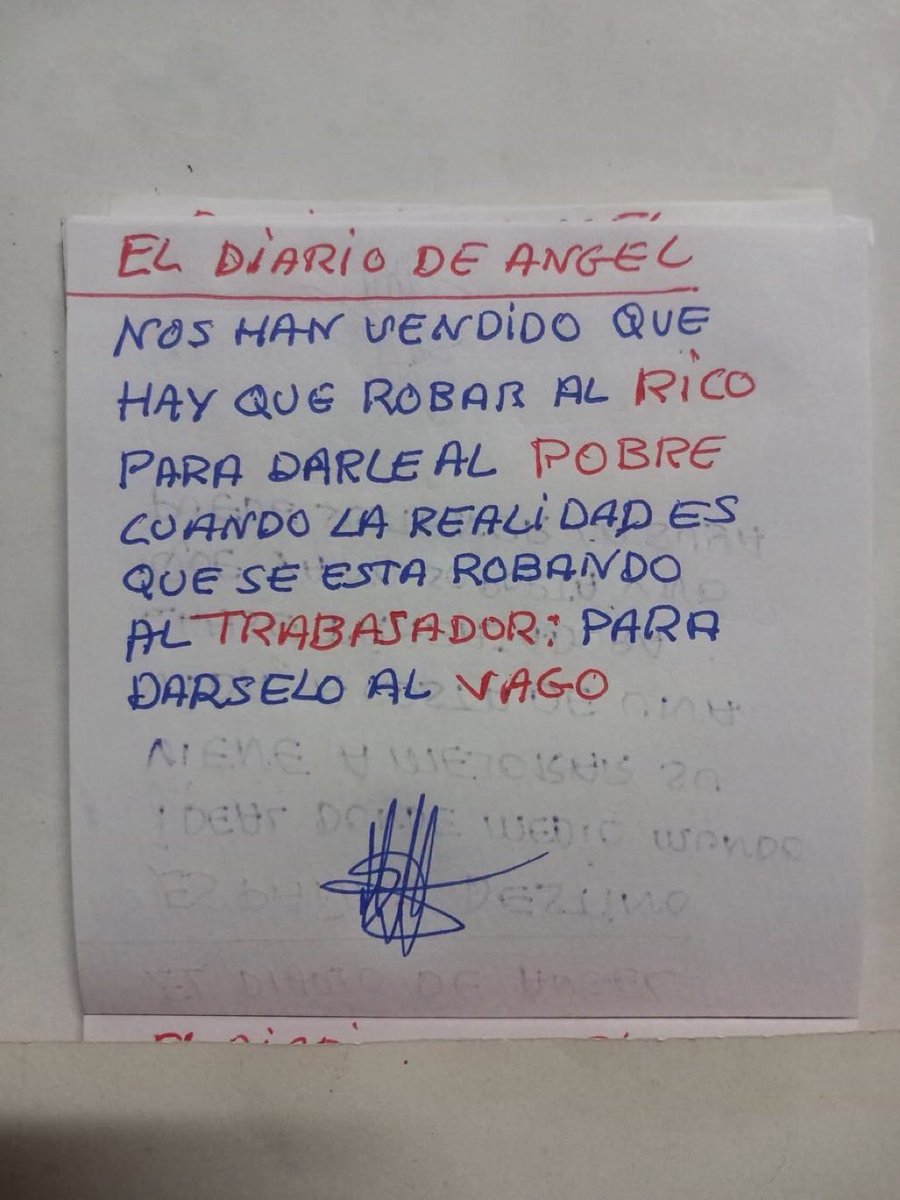 EL DIARIO DE ANGEL
NOS HAN VENDIDO QUE
HAY QUE ROBAR AL RICO
PARA DARLE AL POBRE
CUANDO LA REALIDAD ES
QUE SE ESTA ROBANDO
AL TRABAJADOR: PARA
DARSELO AL VAGO